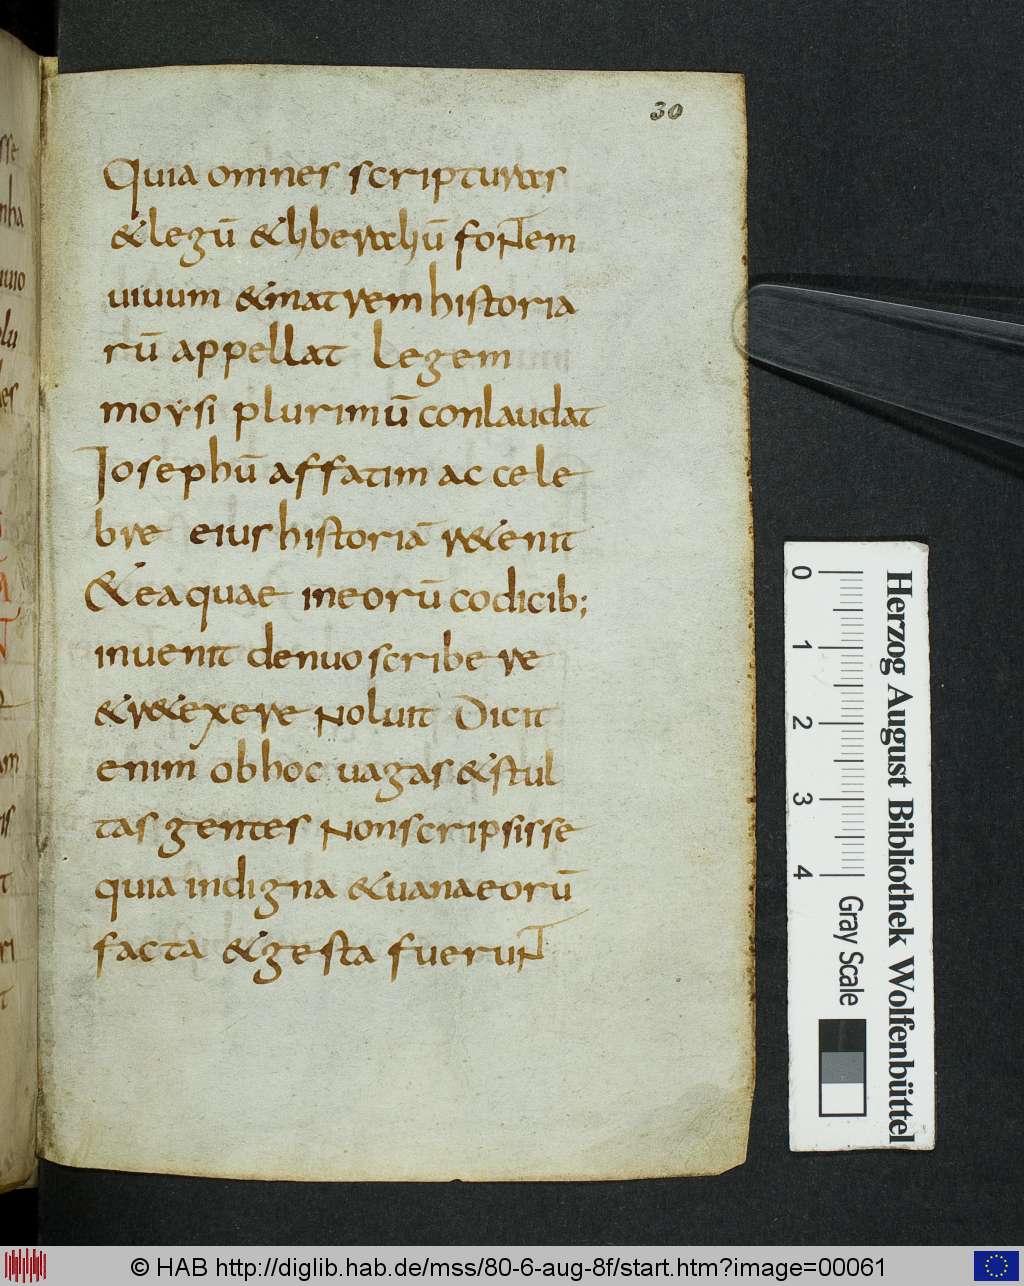 30
Quia omnes scripturas
& legū & hberachū fontem
uiuum & matrem historia
rū appellat Legem
moysi plurimū conlaudat
Iosephū affatim ac cele
bre eius historiā r&enit
& ea quae in eorū codicib;
inuenit denuo scribere
& r&exere noluit Dicit
enim ob hoc uagas & stul
tas gentes non scripsisse
quia indigna & uana eorū
facta & gesta fuerunt
Herzog August Bibliothek Wolfenbüttel
0 1 2 3 4
Gray Scale
© HAB http://diglib.hab.de/mss/80-6-aug-8f/start.htm?image=00061